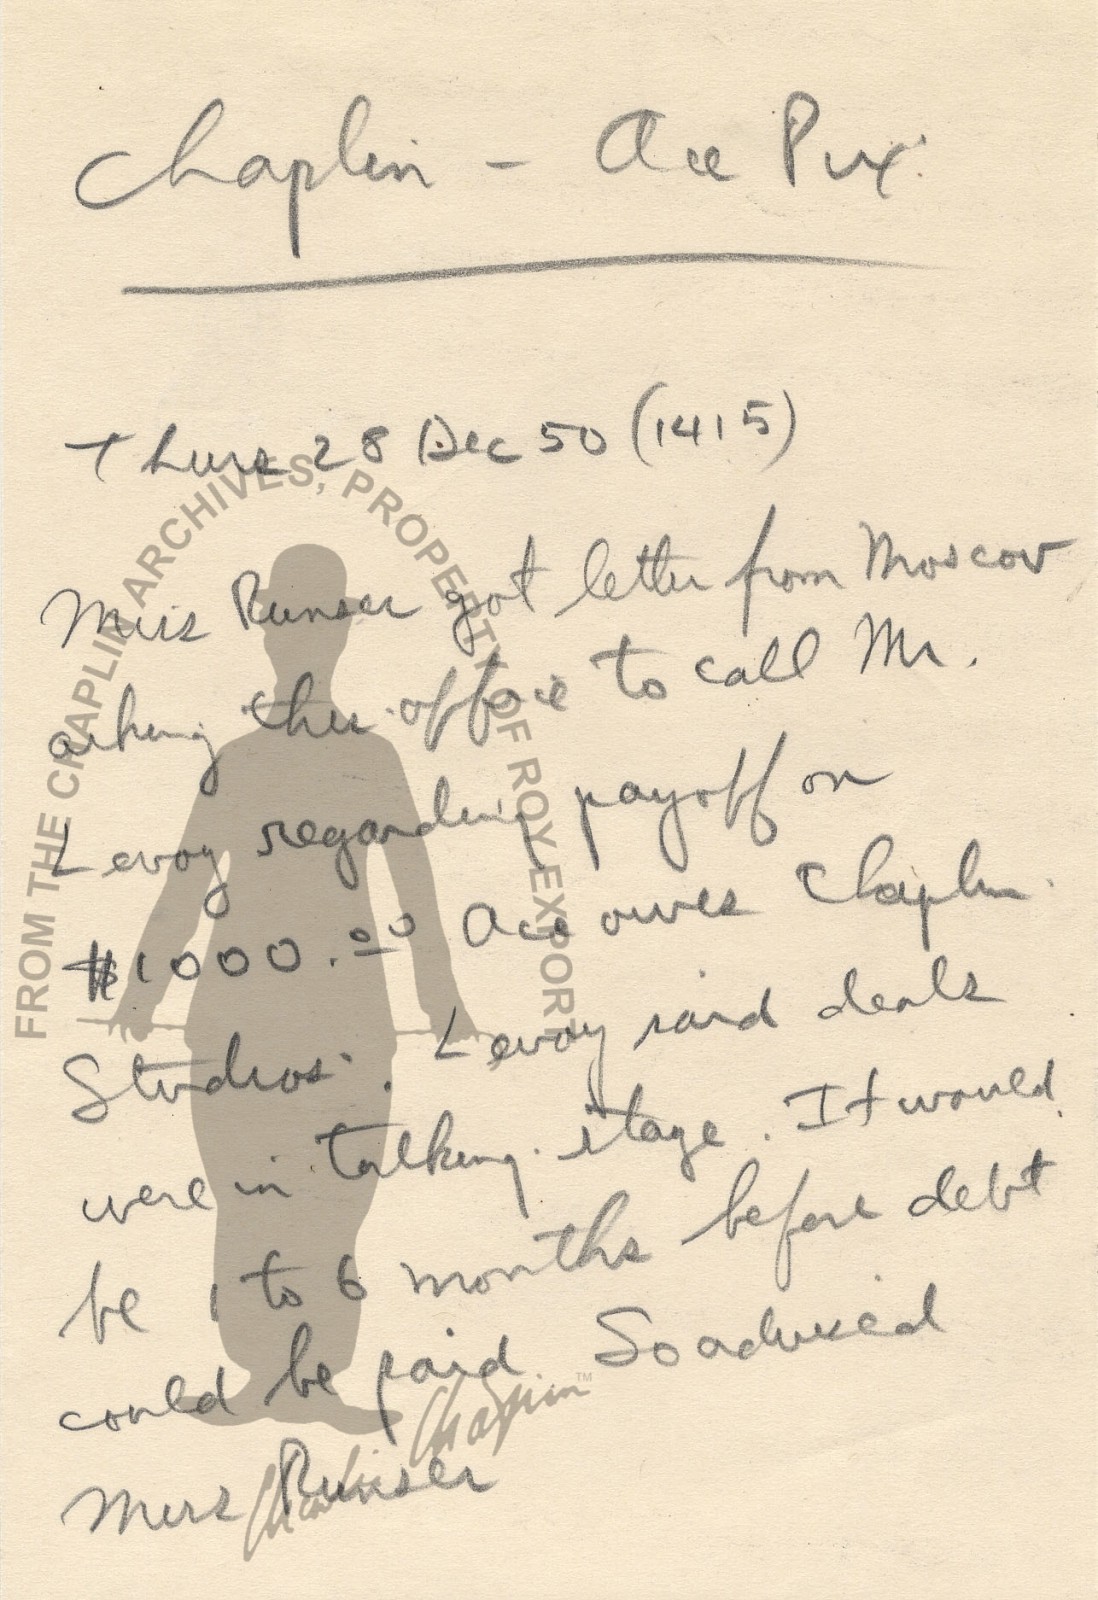 Chaplin - Ace Pix.
Thurs 28 Dec 50 (1415)
Miss Runser got letter from Moscov
asking this office to call Mr.
Levoy regarding payoff on
$1000.00 Ace owes Chaplin
Studios. Levoy said deals
were in talking stage. It would
be 1 to 6 months before debt
could be paid. So advised
Miss Runser
FROM THE CHAPLIN ARCHIVES, PROPERTY OF ROY EXPORT
Charlie Chaplin™